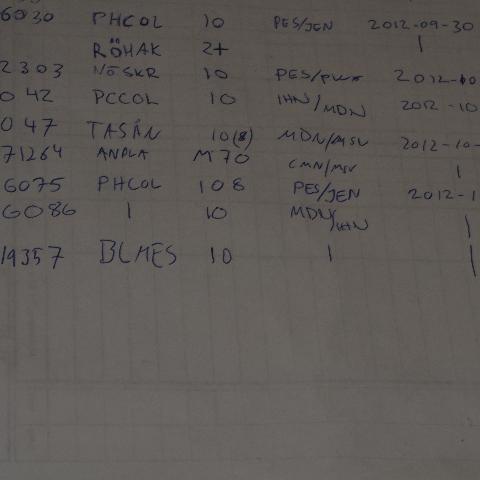 6030 PHCOL 10 PES/JEN 2012-09-30
RÖHAK 2+ |
2303 NÖSKR 10 PES/PWA 2012-10
042 PCCOL 10 IHN/MDN 2012-10
047 TASÅN 10(8) MDN/MSV 2012-10-
71264 ANPLA M70 CMN/MSV |
6075 PHCOL 108 PES/JEN 2012-1
6086 | 10 MDN/IHN |
19357 BLMES 10 | |